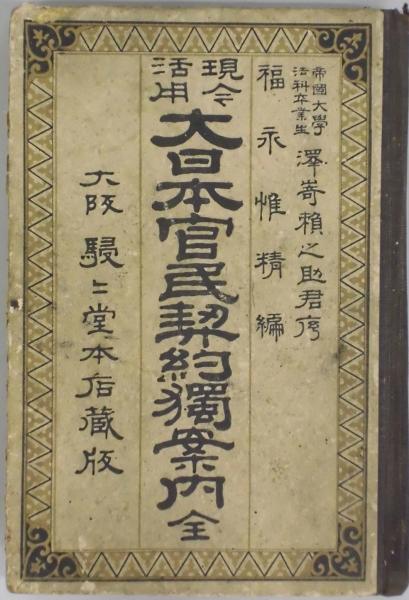 帝國大學
法科卒業生
澤嵜賴之助君序
福永惟精編
現今
活用
大日本官民契約獨案内 全
大阪 駸〻堂本店藏版